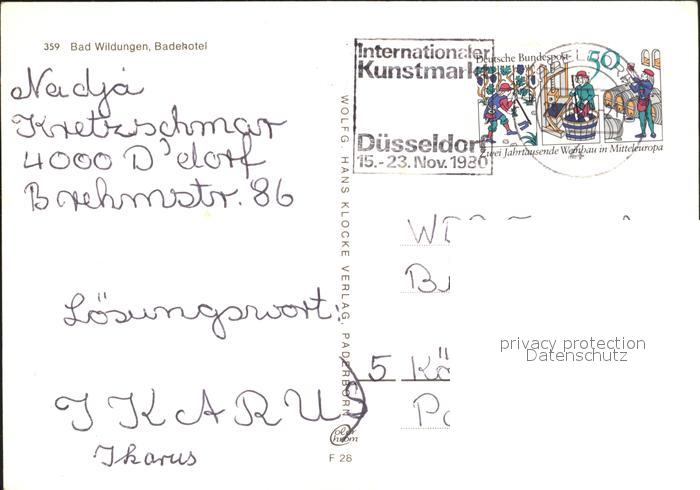 359 Bad Wildungen, Badehotel
Nadja
Kretzschmar
4000 D'dorf
Brehmstr. 86
Lösungswort:
IKARUS
Ikarus
WOLFG. HANS KLOCKE VERLAG, PADERBORN
F 28
Internationaler
Kunstmarkt
Düsseldorf
15.-23. Nov. 1980
Deutsche Bundespost
50
Zwei Jahrtausende Weinbau in Mitteleuropa
5 Kö
privacy protection
Datenschutz